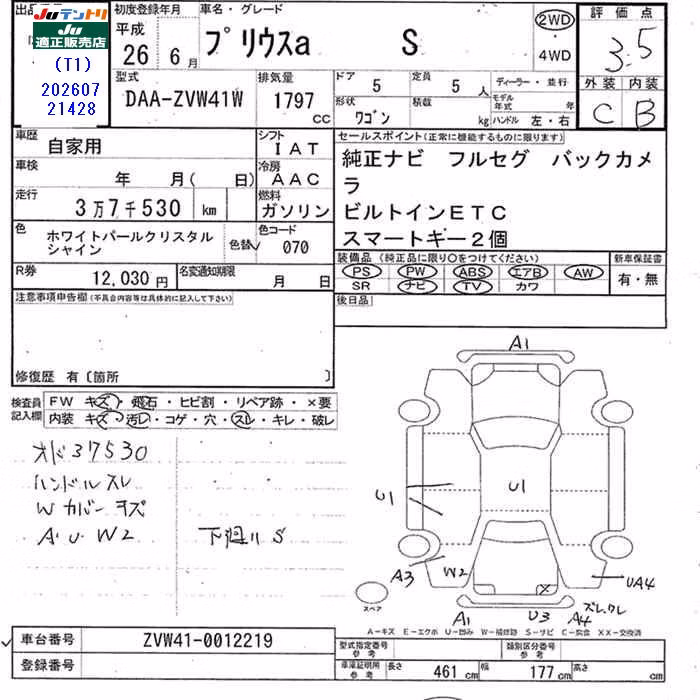 出品
Juテントリ
Ju適正販売店
(T1)
202607
21428
初度登録年月
平成
26 6月
車名・グレード
プリウスa S
2WD
4WD
評価点
3.5
外装 内装
C B
型式
DAA-ZVW41W
排気量
1797
CC
ドア
5
定員
5人
ディーラー・並行
形状
ワゴン
積載
kg
モデル年式 年
ハンドル 左・右
車歴
自家用
シフト
IAT
車検
年 月( 日)
冷房
AAC
走行
3万7千530 km
燃料
ガソリン
色
ホワイトパールクリスタル
シャイン
色替
色コード
070
R券
12,030円
名変通知期限
月 日
セールスポイント(正常に機能するものに限ります)
純正ナビ フルセグ バックカメ
ラ
ビルトインETC
スマートキー2個
装備品(純正品に限り○をつけてください)
PS PW ABS エアB AW
SR ナビ TV カワ
新車保証書
有・無
注意事項申告欄(不具合内容等は具体的に記入して下さい)
後日品
修復歴 有〔箇所 〕
検査員
記入欄
FW キズ・飛石・ヒビ割・リペア跡・×要
内装 キズ・汚レ・コゲ・穴・スレ・キレ・破レ
オド37530
ハンドルスレ
Wカバーキズ
A U W2
下廻りS
A1
U1
U1
A3
W2
UA4
A1
U3
A4
ズレ,クレ
スペア
A-キズ E-エクボ U-凹み W-補修跡 S-サビ C-腐食 XX-交換済
車台番号
ZVW41-0012219
登録番号
型式指定番号
参考
類別区分番号
参考
車庫証明用
参考
長さ 461 cm
幅 177 cm
高さ cm